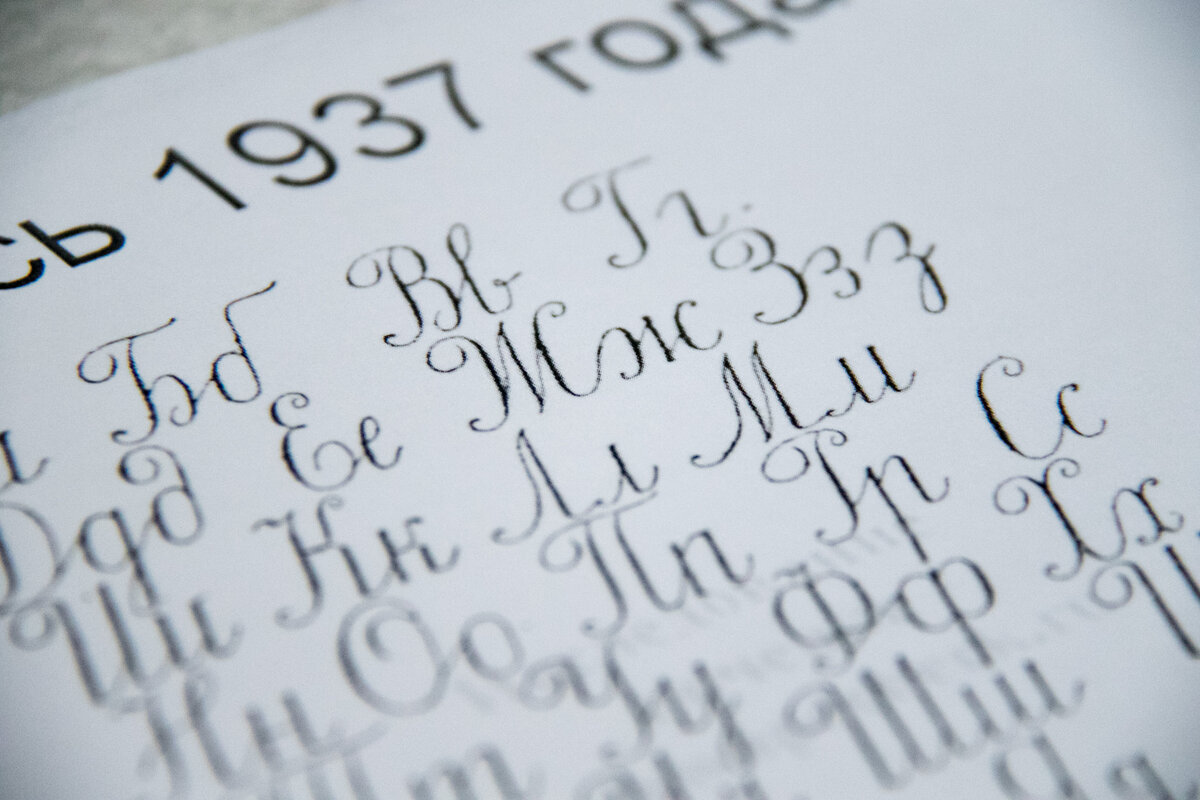 сь 1937 года
Бб Вв Гг
Ддд Ее Жж Ззз
Ии Кк Лл Мм
Нн Оо Пп Рр Сс
Уу Фф Хх
Шш